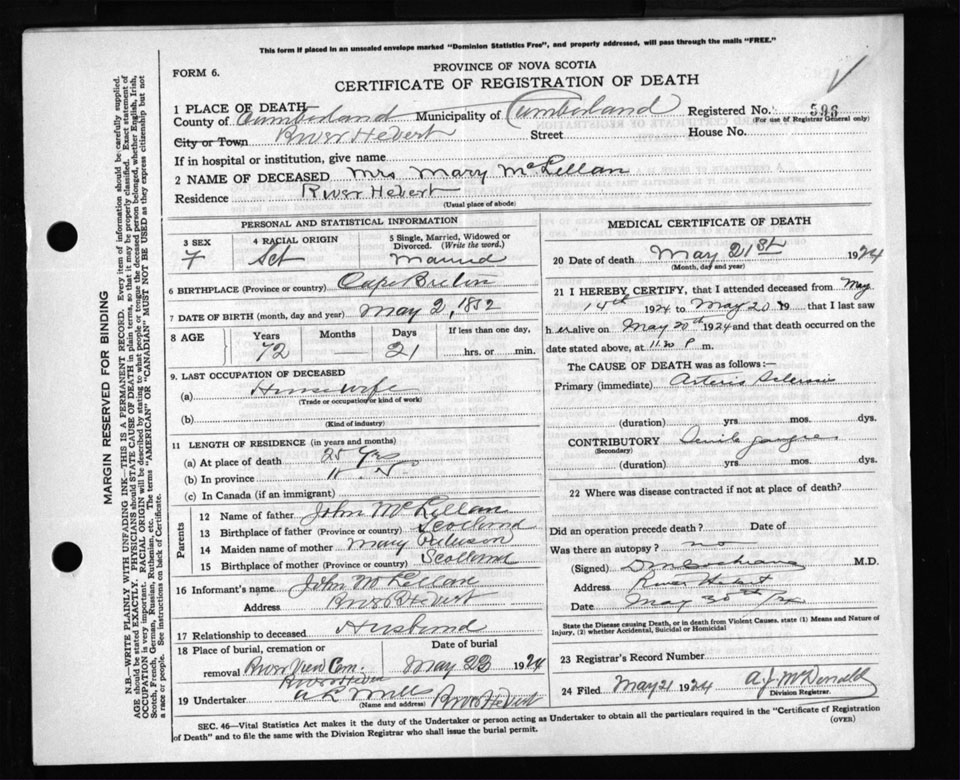 This form if placed in an unsealed envelope marked "Dominion Statistics Free", and properly addressed, will pass through the mails "FREE."
FORM 6.
PROVINCE OF NOVA SCOTIA
CERTIFICATE OF REGISTRATION OF DEATH
1 PLACE OF DEATH
County of Cumberland Municipality of Cumberland Registered No. 596
(For use of Registrar General only)
City or Town River Hebert Street House No.
If in hospital or institution, give name
2 NAME OF DECEASED Mrs Mary McLellan
Residence River Hebert
(Usual place of abode)
PERSONAL AND STATISTICAL INFORMATION
3 SEX F
4 RACIAL ORIGIN Sct
5 Single, Married, Widowed or Divorced. (Write the word.) Married
6 BIRTHPLACE (Province or country) Cape Breton
7 DATE OF BIRTH (month, day and year) May 2, 1852
8 AGE Years 72 Months — Days 21 If less than one day, hrs. or min.
9. LAST OCCUPATION OF DECEASED
(a) Housewife
(Trade or occupation or kind of work)
(b)
(Kind of industry)
11 LENGTH OF RESIDENCE (in years and months)
(a) At place of death 25 yrs
(b) In province
(c) In Canada (if an immigrant)
Parents
12 Name of father John McLellan
13 Birthplace of father (Province or country) Scotland
14 Maiden name of mother Mary
15 Birthplace of mother (Province or country) Scotland
16 Informant's name John McLellan
Address River Hebert
17 Relationship to deceased Husband
18 Place of burial, cremation or removal River View Cem. River Hebert
Date of burial May 23 1924
19 Undertaker A L Mills River Hebert
(Name and address)
MEDICAL CERTIFICATE OF DEATH
20 Date of death May 21st 1924
(Month, day and year)
21 I HEREBY CERTIFY, that I attended deceased from May
14th 1924 to May 20 19 that I last saw
her alive on May 20th 1924 and that death occurred on the
date stated above, at 11.30 P m.
The CAUSE OF DEATH was as follows:—
Primary (immediate) Arterio Sclerosis
(duration) yrs. mos. dys.
CONTRIBUTORY Senile gangrene
(Secondary)
(duration) yrs. mos. dys.
22 Where was disease contracted if not at place of death?
Did an operation precede death? Date of
Was there an autopsy? no
(Signed) D M Cochrane M.D.
Address River Hebert
Date May 30th/24
State the Disease causing Death, or in death from Violent Causes, state (1) Means and Nature of Injury, (2) whether Accidental, Suicidal or Homicidal
23 Registrar's Record Number
24 Filed May 21 1924 A. J. McDonald
Division Registrar.
SEC. 46—Vital Statistics Act makes it the duty of the Undertaker or person acting as Undertaker to obtain all the particulars required in the "Certificate of Registration
of Death" and to file the same with the Division Registrar who shall issue the burial permit.
(OVER)
MARGIN RESERVED FOR BINDING
N.B.—WRITE PLAINLY WITH UNFADING INK—THIS IS A PERMANENT RECORD. Every item of information should be carefully supplied.
AGE should be stated EXACTLY. PHYSICIANS should STATE CAUSE OF DEATH in plain terms, so that it may be properly classified. Exact statement of
OCCUPATION is very important. RACIAL ORIGIN will be described by stating to what people or tongue the deceased person belonged, whether English, Irish,
Scotch, French, German, Russian, Ruthenian, etc. The terms "AMERICAN" or "CANADIAN" MUST NOT BE USED as they express citizenship but not
a race or people. See instructions on back of Certificate.